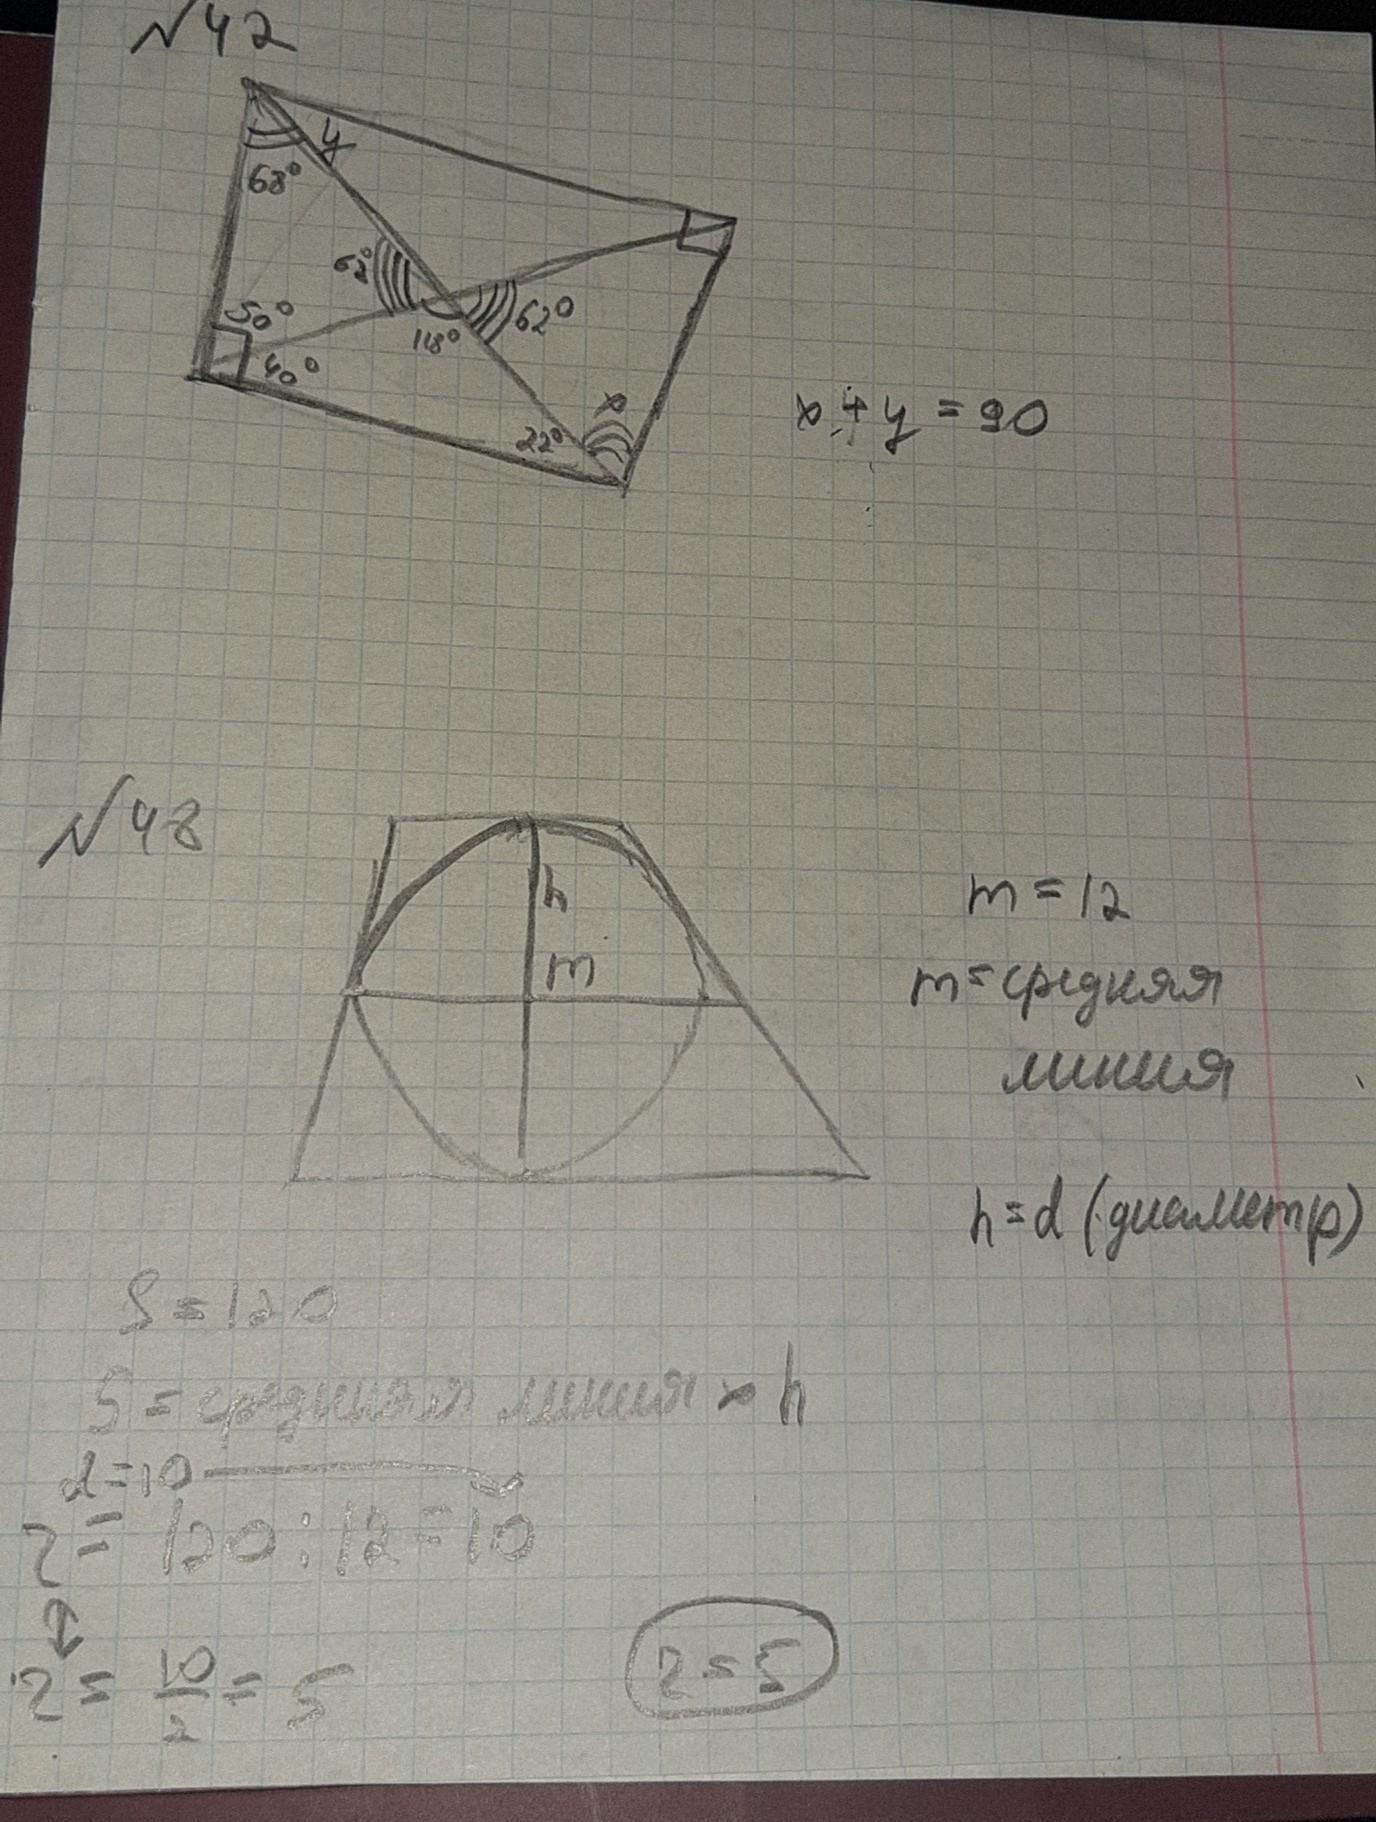 №42
y
68°
62°
50°
62°
118°
40°
x
x + y = 90
22°
№48
h
m = 12
m
m = средняя
линия
h = d (диаметр)
S = 120
S = средняя линия × h
d = 10
r = 120 : 12 = 10
r = 10/2 = 5
r = 5